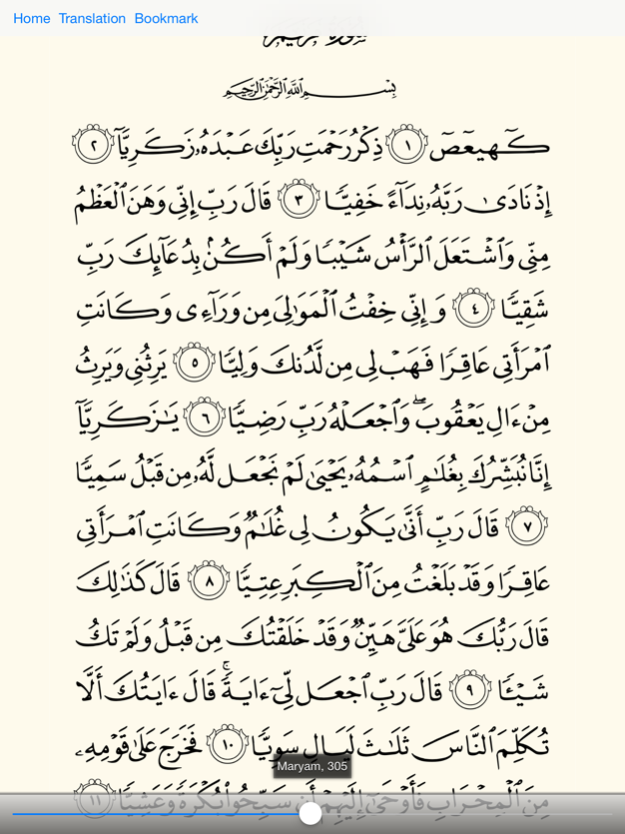 Home Translation Bookmark
سُورَةُ مَرْيَمَ
بِسْمِ ٱللَّهِ ٱلرَّحْمَٰنِ ٱلرَّحِيمِ
كٓهيعٓصٓ ١ ذِكْرُ رَحْمَتِ رَبِّكَ عَبْدَهُۥ زَكَرِيَّآ ٢
إِذْ نَادَىٰ رَبَّهُۥ نِدَآءً خَفِيًّا ٣ قَالَ رَبِّ إِنِّى وَهَنَ ٱلْعَظْمُ
مِنِّى وَٱشْتَعَلَ ٱلرَّأْسُ شَيْبًا وَلَمْ أَكُنۢ بِدُعَآئِكَ رَبِّ
شَقِيًّا ٤ وَإِنِّى خِفْتُ ٱلْمَوَٰلِىَ مِن وَرَآءِى وَكَانَتِ
ٱمْرَأَتِى عَاقِرًا فَهَبْ لِى مِن لَّدُنكَ وَلِيًّا ٥ يَرِثُنِى وَيَرِثُ
مِنْ ءَالِ يَعْقُوبَ ۖ وَٱجْعَلْهُ رَبِّ رَضِيًّا ٦ يَٰزَكَرِيَّآ
إِنَّا نُبَشِّرُكَ بِغُلَٰمٍ ٱسْمُهُۥ يَحْيَىٰ لَمْ نَجْعَل لَّهُۥ مِن قَبْلُ سَمِيًّا
٧ قَالَ رَبِّ أَنَّىٰ يَكُونُ لِى غُلَٰمٌ وَكَانَتِ ٱمْرَأَتِى
عَاقِرًا وَقَدْ بَلَغْتُ مِنَ ٱلْكِبَرِ عِتِيًّا ٨ قَالَ كَذَٰلِكَ
قَالَ رَبُّكَ هُوَ عَلَىَّ هَيِّنٌ وَقَدْ خَلَقْتُكَ مِن قَبْلُ وَلَمْ تَكُ
شَيْـًٔا ٩ قَالَ رَبِّ ٱجْعَل لِّىٓ ءَايَةً ۚ قَالَ ءَايَتُكَ أَلَّا
تُكَلِّمَ ٱلنَّاسَ ثَلَٰثَ لَيَالٍ سَوِيًّا ١٠ فَخَرَجَ عَلَىٰ قَوْمِهِۦ
Maryam, 305
مِنَ ٱلْمِحْرَابِ فَأَوْحَىٰٓ إِلَيْهِمْ أَن سَبِّحُوا۟ بُكْرَةً وَعَشِيًّا ١١